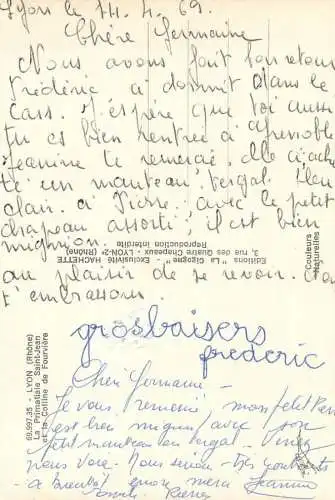 Lyon le 14. 4. 69.
Chère Germaine
Nous avons fait bon retour
Frédéric a dormit dans le
Cass. J'espère que toi aussi
tu es bien rentrée a grenoble
Jeannine te remercie. elle a
un manteau, tergal bleu
clair. a Pierre. avec le petit
chapeau assorti, il est bien
mignion.
au plaisir de se revoir. on
t'embrasse.
Editions "La Cigogne" - Exclusivité HACHETTE
3, rue des Quatre Chapeaux - LYON-2e (Rhône)
Reproduction interdite
Couleurs
Naturelles
69.997.35 - LYON (Rhône)
La Primatiale Saint-Jean
et la Colline de Fourvière
grosbaisers
frederic
Chère Germaine
Je vous remercie mon petit Pierre
est bien mignon avec son
petit manteau en tergal. Venez
nous voir. Nous serions très contents
a Bientôt encore merci Jeannine
Pierre